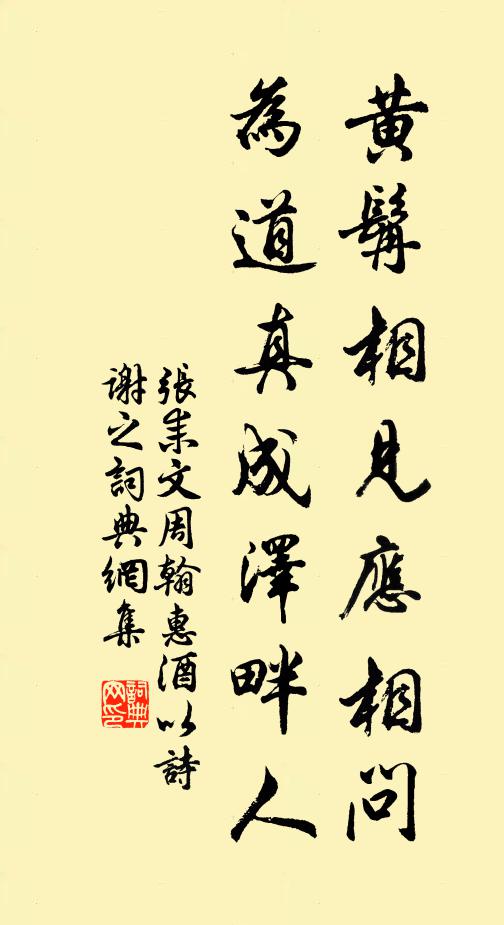 黄髯相見應相問
為道真成澤畔人
張耒文周翰惠酒以詩
謝之詞典網集
詞典
网印